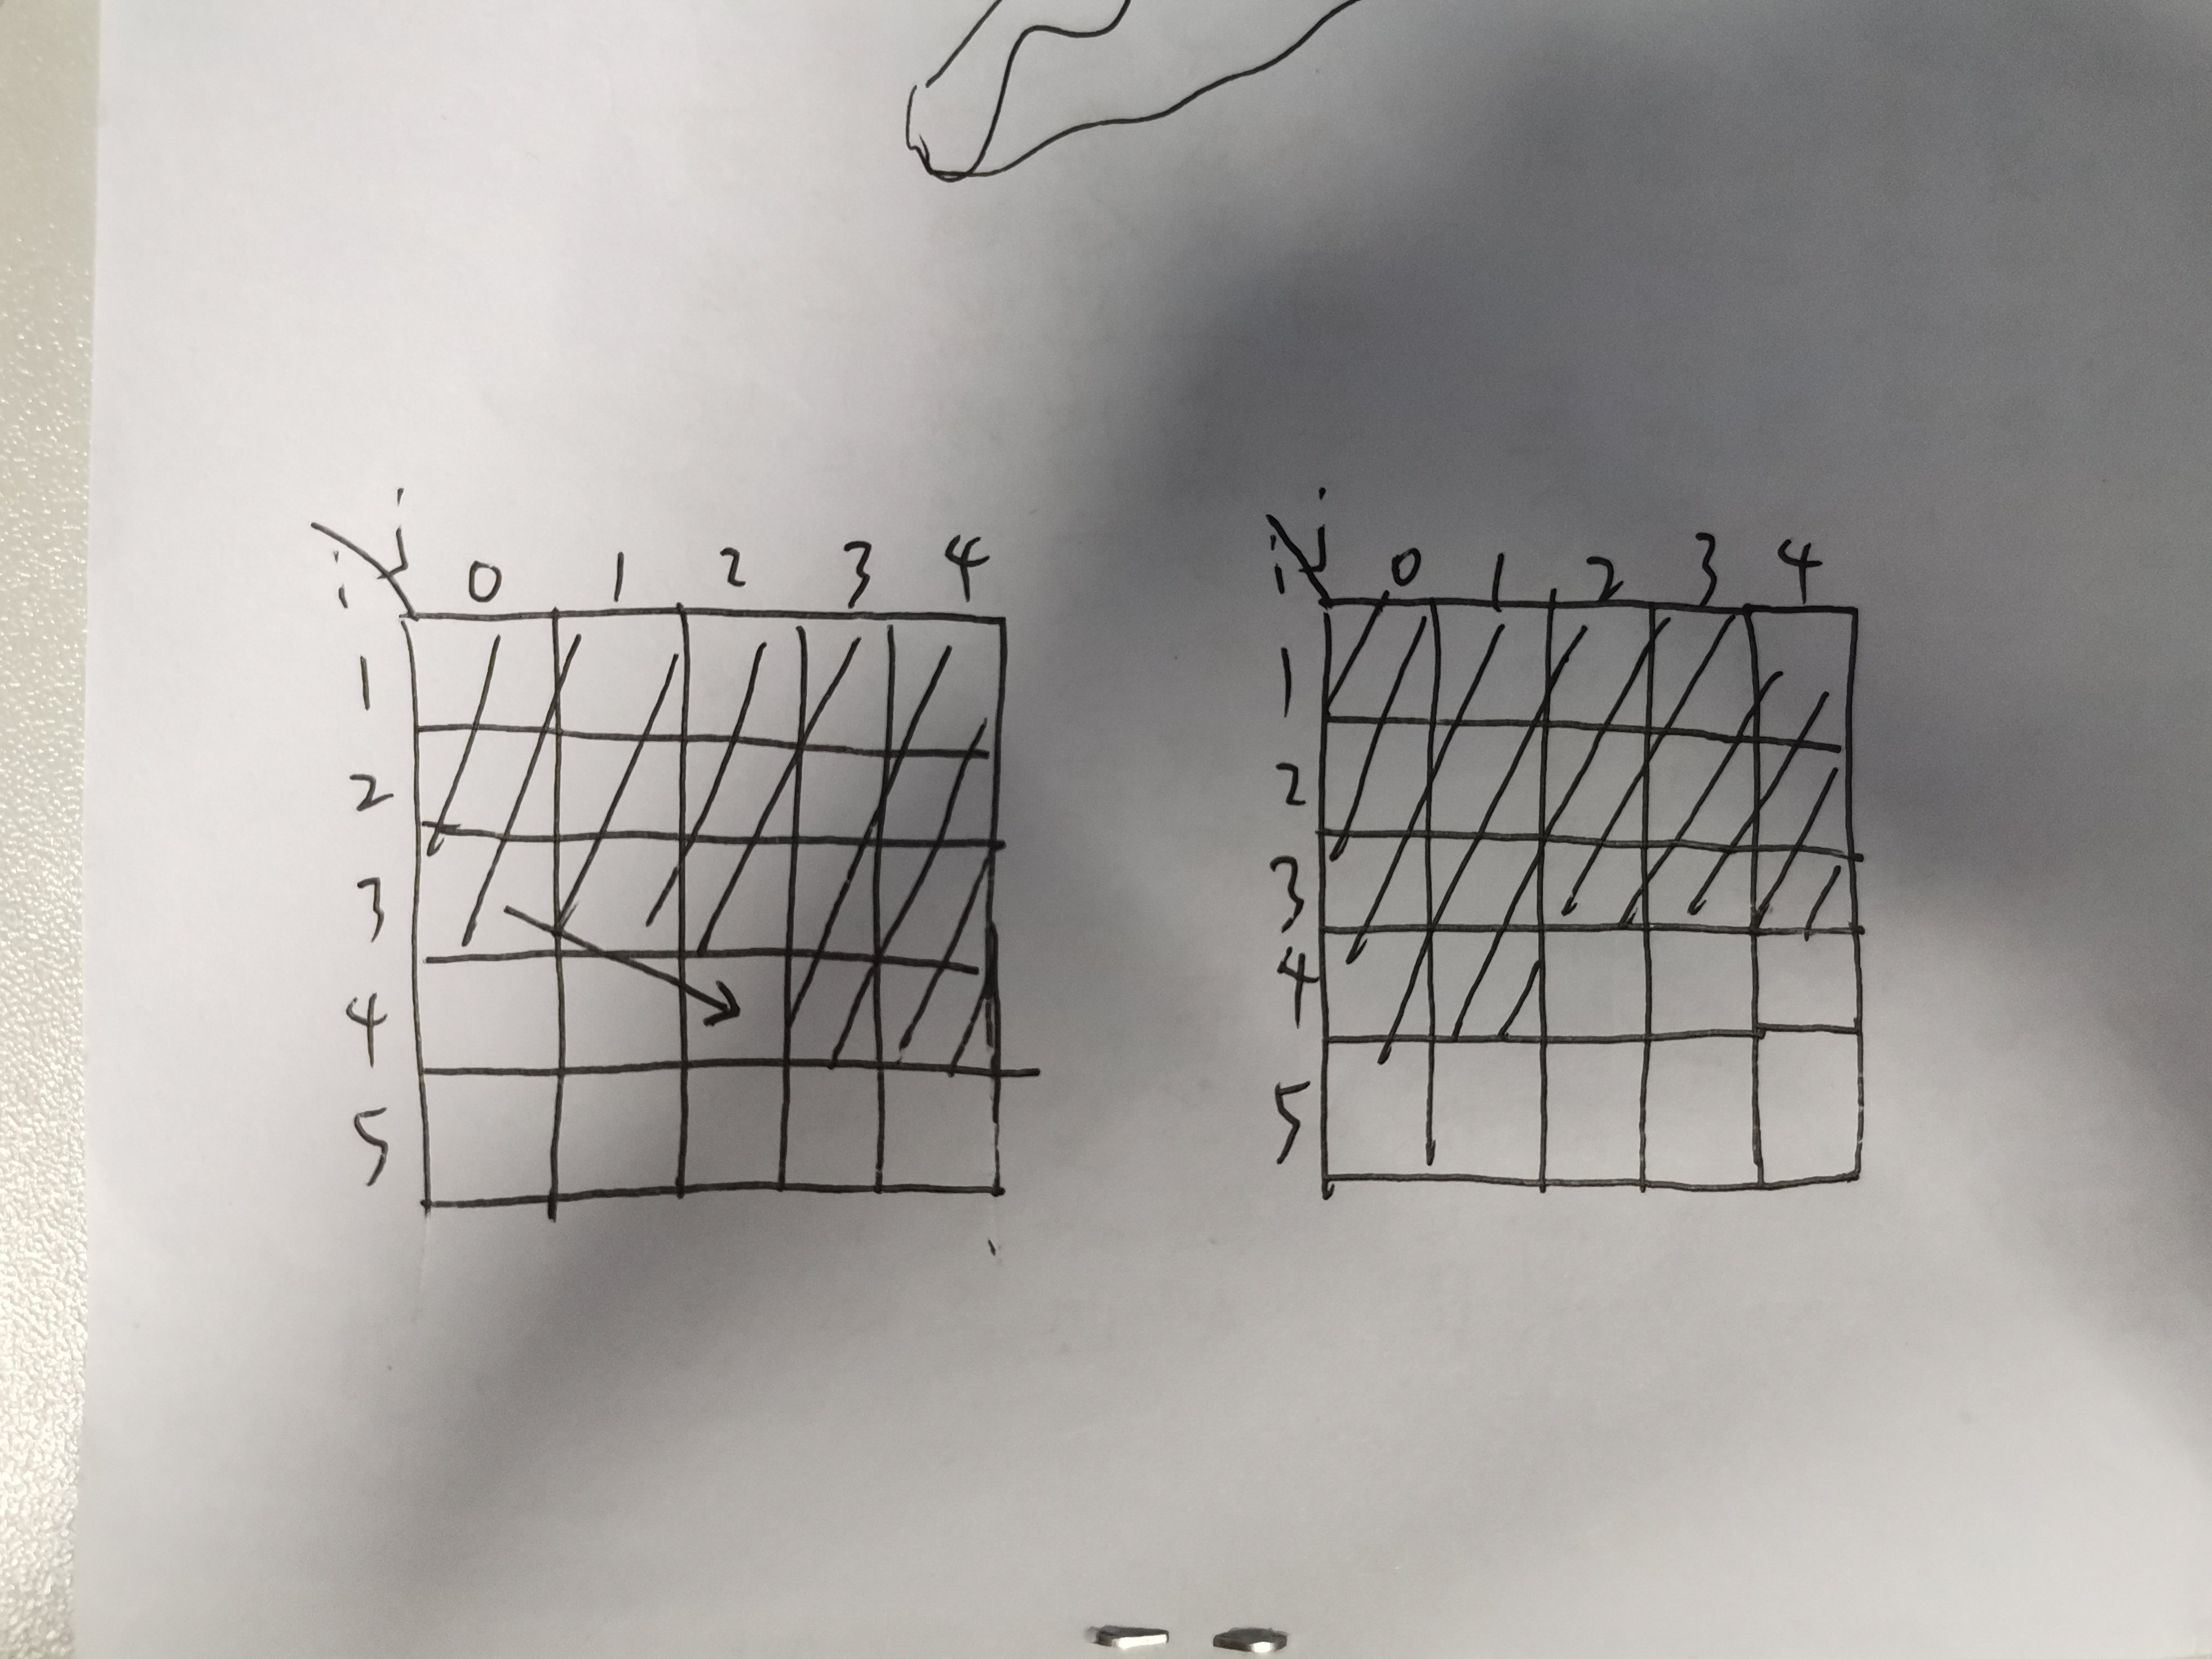 i j 0 1 2 3 4
1
2
3
4
5
i j 0 1 2 3 4
1
2
3
4
5